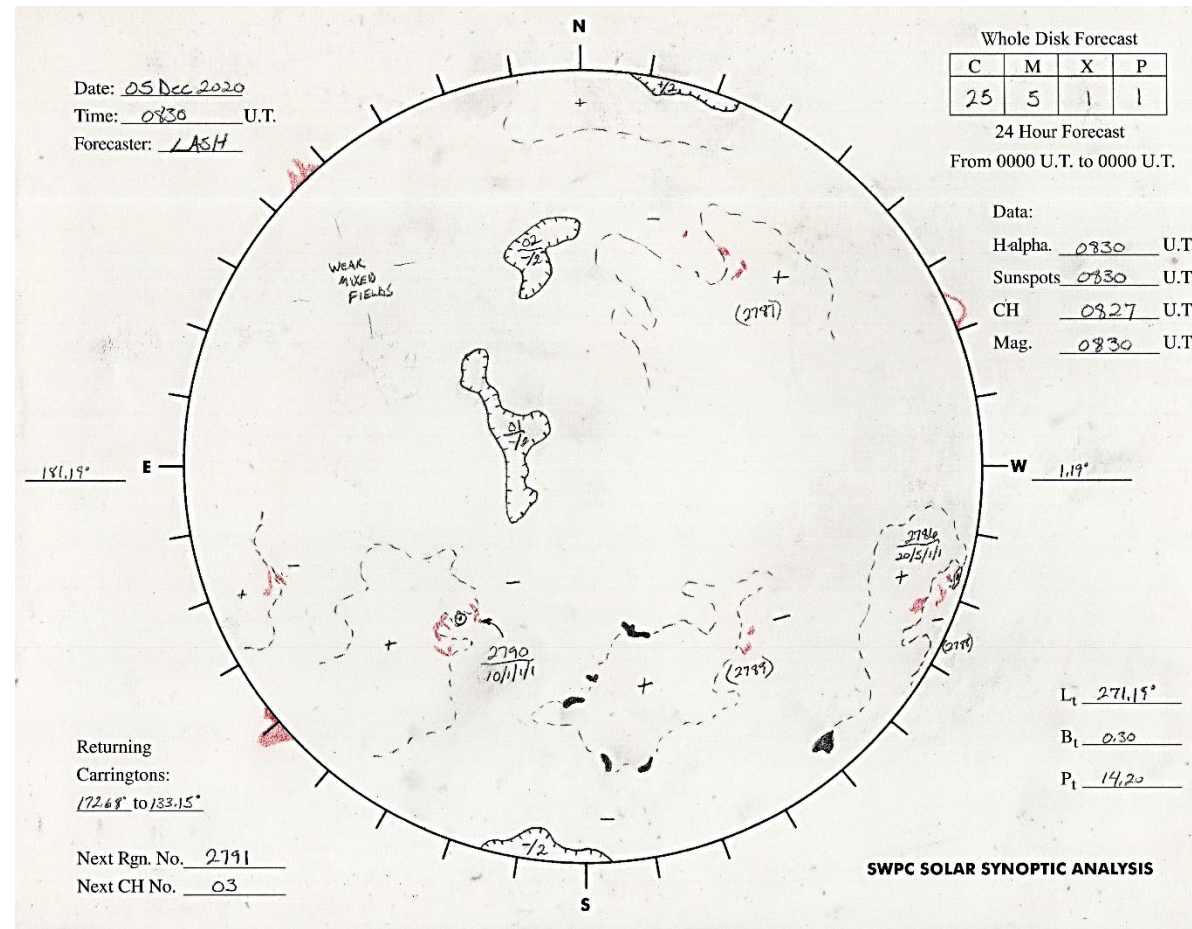 N
Date: 05 Dec 2020
Time: 0830 U.T.
Forecaster: LASH
Whole Disk Forecast
C M X P
25 5 1 1
24 Hour Forecast
From 0000 U.T. to 0000 U.T.
+/2
+
Data:
H-alpha. 0830 U.T
Sunspots 0830 U.T
CH 0827 U.T
Mag. 0830 U.T
02
-/2
-
+
WEAK
MIXED
FIELDS
(2787)
01
-/2
181.19° E
W 1.19°
2786
20/5/1/1
+
-
+
-
+
2790
10/1/1/1
-
(2789)
+
-
(2788)
Lt 271.19°
Bt 0.30
Pt 14.20
Returning
Carringtons:
172.68° to 133.15°
Next Rgn. No. 2791
Next CH No. 03
-
-/2
S
SWPC SOLAR SYNOPTIC ANALYSIS